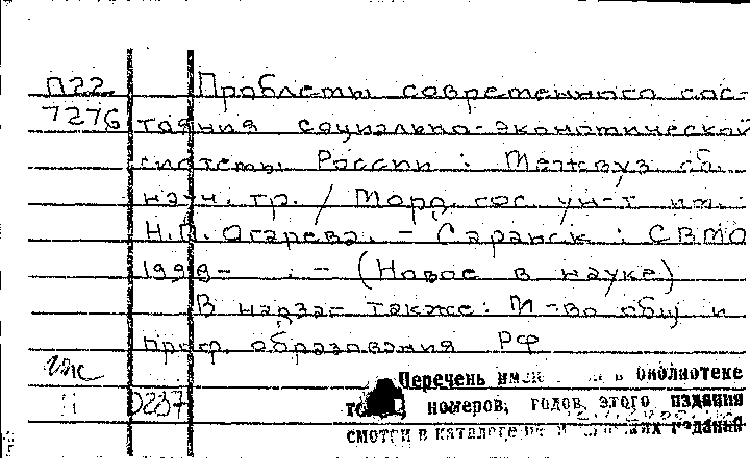 П22 Проблемы современного сос-
7276 тояния социально-экономической
системы России : Межвуз. сб.
науч. тр. / Морд. гос. ун-т им.
Н.П. Огарева. - Саранск : СВМО
1998- . - (Новое в науке)
В надзаг. также: М-во общ. и
проф. образования РФ
Перечень в библиотеке
номеров, годов этого издания
смотри в каталоге